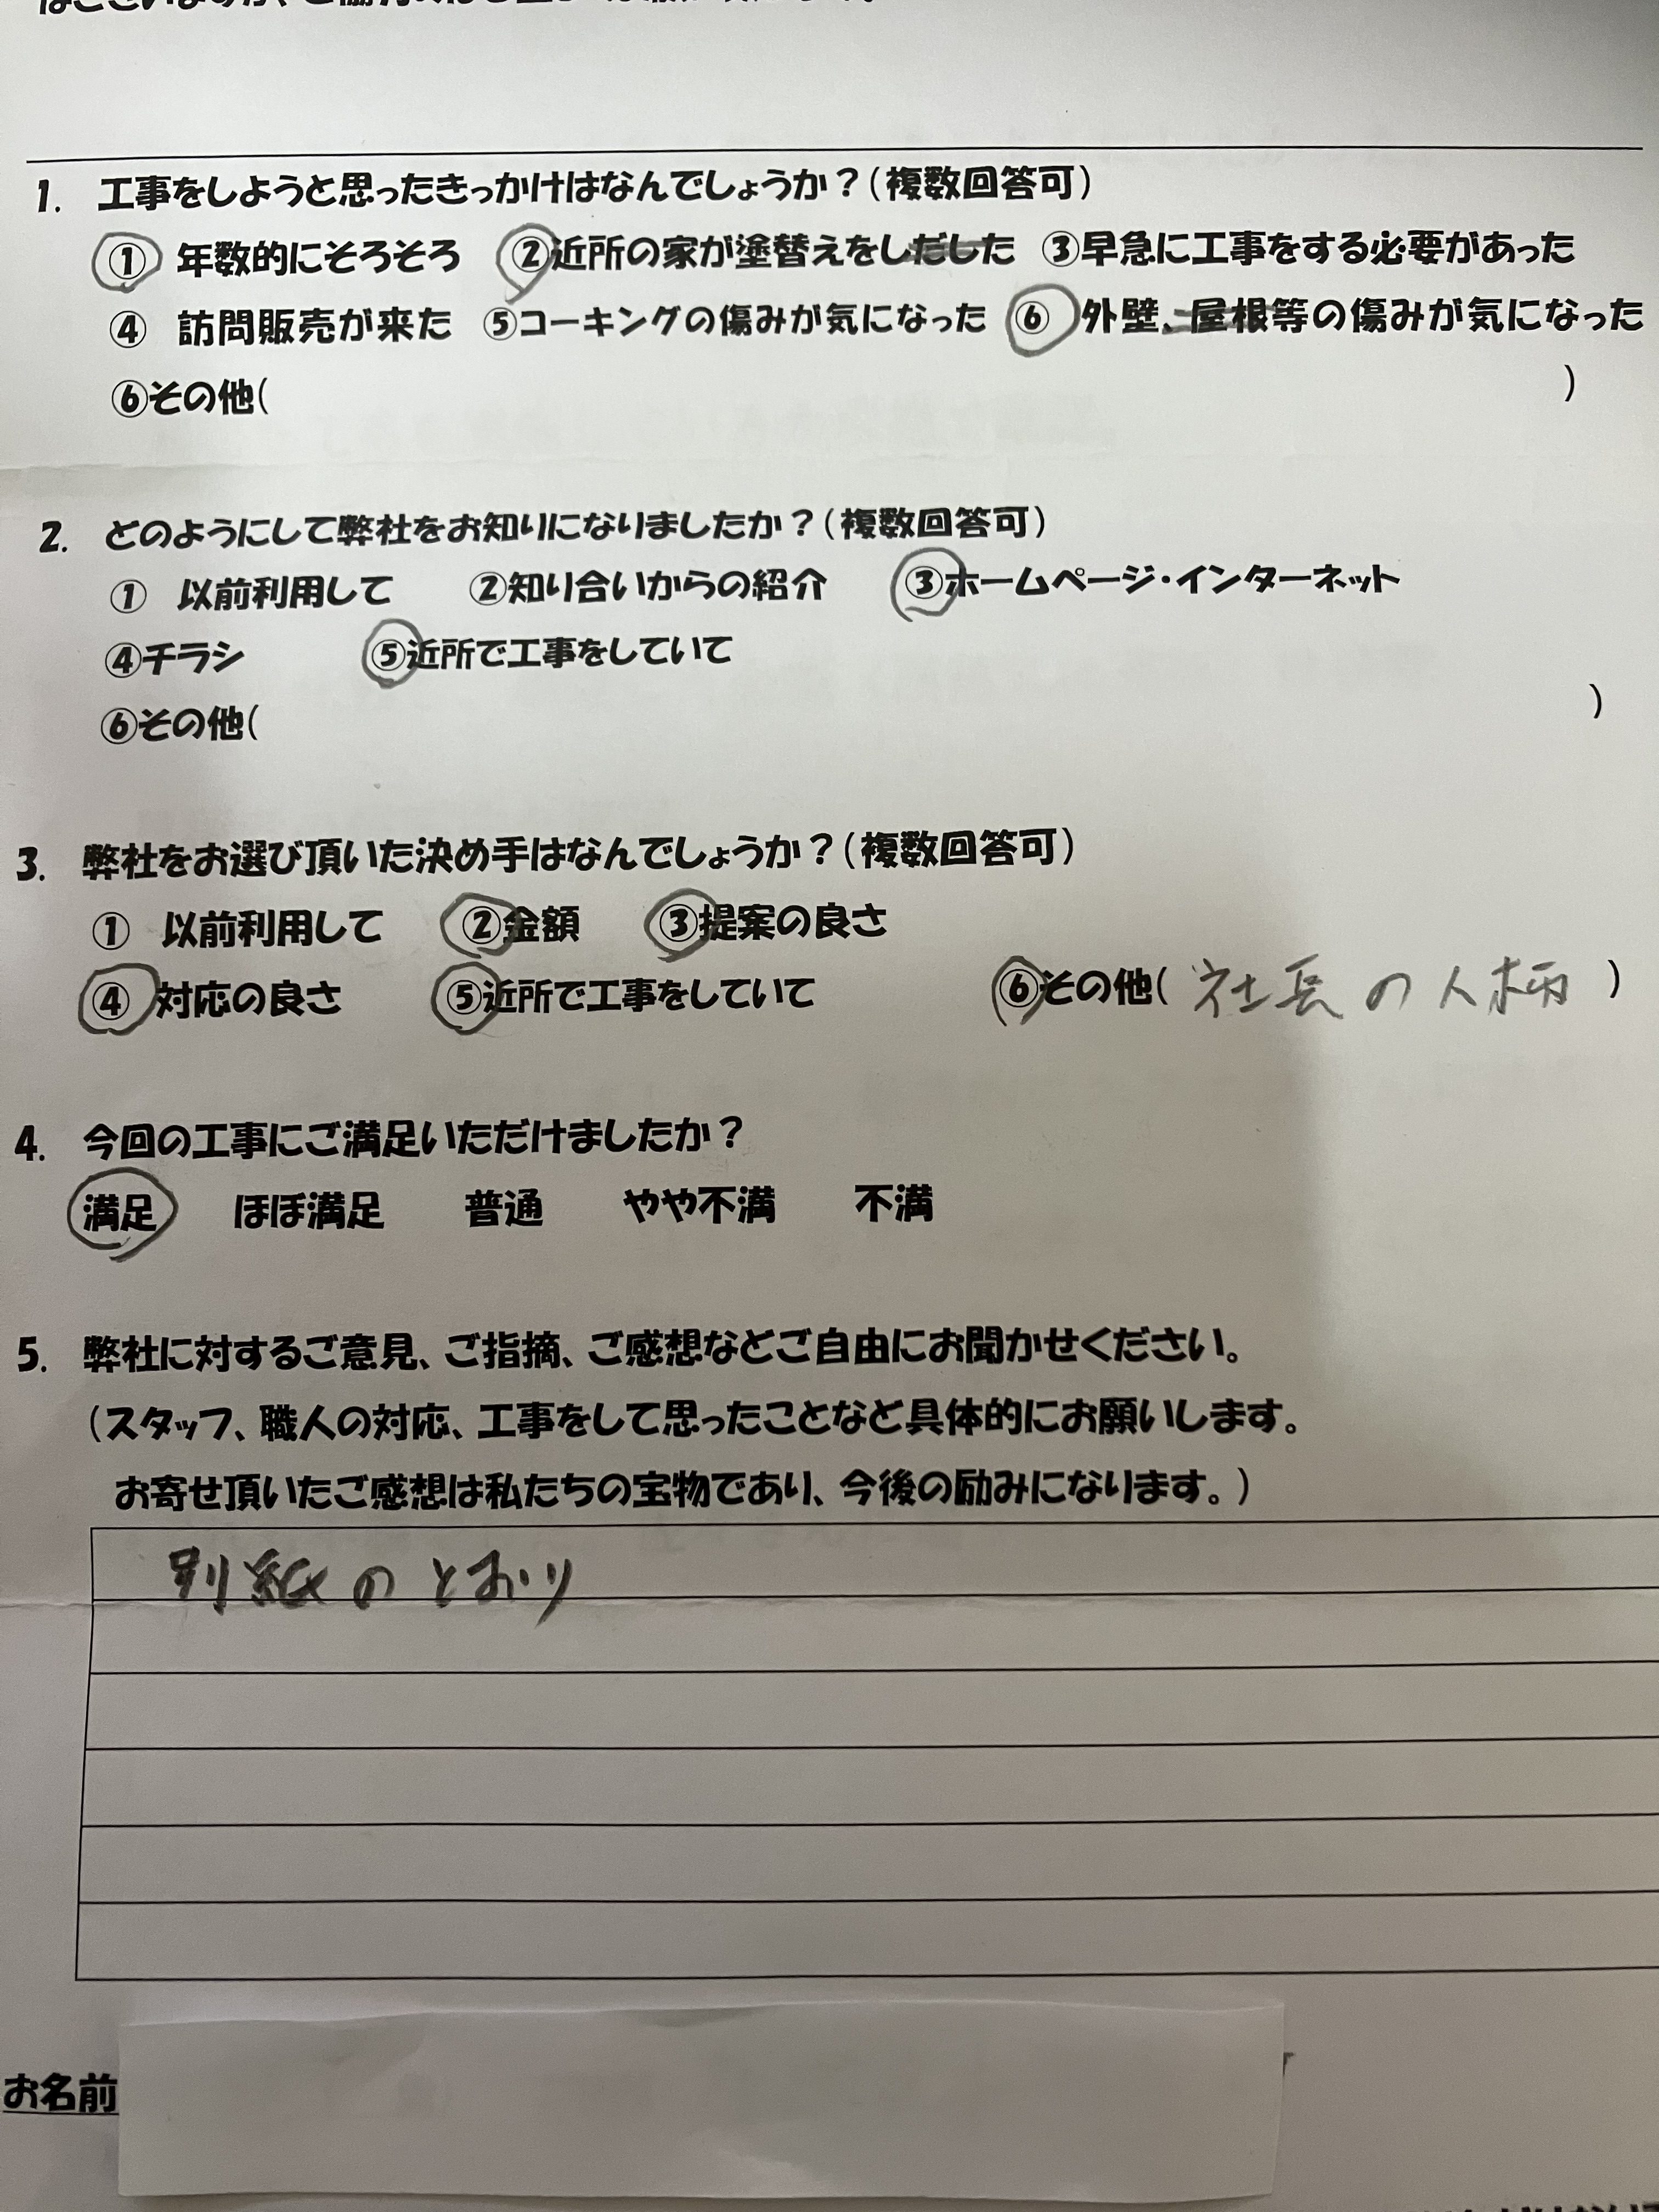 1. 工事をしようと思ったきっかけはなんでしょうか？(複数回答可)
① 年数的にそろそろ ②近所の家が塗替えをしだした ③早急に工事をする必要があった
④ 訪問販売が来た ⑤コーキングの傷みが気になった ⑥ 外壁、屋根等の傷みが気になった
⑥その他( )
2. どのようにして弊社をお知りになりましたか？(複数回答可)
① 以前利用して ②知り合いからの紹介 ③ホームページ・インターネット
④チラシ ⑤近所で工事をしていて
⑥その他( )
3. 弊社をお選び頂いた決め手はなんでしょうか？(複数回答可)
① 以前利用して ②金額 ③提案の良さ
④ 対応の良さ ⑤近所で工事をしていて ⑥その他( 社長の人柄 )
4. 今回の工事にご満足いただけましたか？
満足 ほぼ満足 普通 やや不満 不満
5. 弊社に対するご意見、ご指摘、ご感想などご自由にお聞かせください。
(スタッフ、職人の対応、工事をして思ったことなど具体的にお願いします。
お寄せ頂いたご感想は私たちの宝物であり、今後の励みになります。)
別紙のとおり
お名前